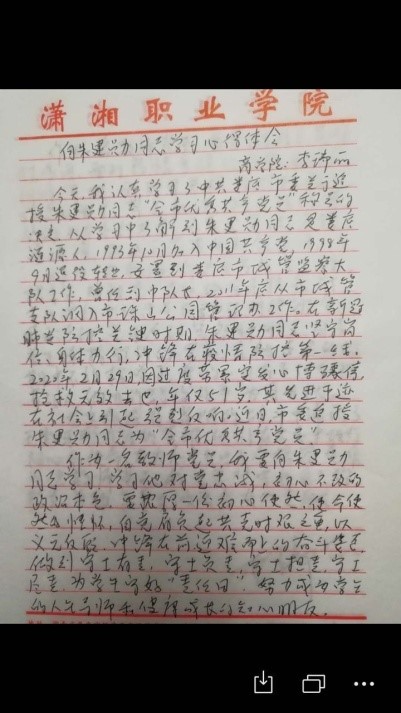 潇湘职业学院
向朱建勋同志学习心得体会
商学院：李
今天，我认真学习了中共娄底市委关于追
授朱建勋同志“全市优秀共产党员”称号的
决定，从学习中了解到朱建勋同志是娄底
涟源人，1993年10月加入中国共产党，1998年
9月退役转业，安置到娄底市城管监察大
队工作，曾任到中队长，2011年底从市城管
支队调入市珠山公园管理办工作。在新冠
肺炎防控关键时期，朱建勋同志坚守岗
位，身体力行，冲锋在疫情防控第一线。
2020年2月29日，因过度劳累突发心博骤停，
抢救无效去世，年仅51岁，其先进事迹
在社会上引起强烈反响。近日，市委追授
朱建勋同志为“全市优秀共产党员”
作为一名教师党员，我要向朱建勋
同志学习，学习他对党忠诚，初心不改的
政治本色，要怀一份初心使然，使命使
然的情怀，自觉肩负起共克时艰之重，以
义无反顾，冲锋在前，迎难而上的奋斗姿态
做到守土有责，守土负责，守土担责，守土
尽责，为学生守好“责任田”，努力成为学生
的人生导师和健康成长的知心朋友。